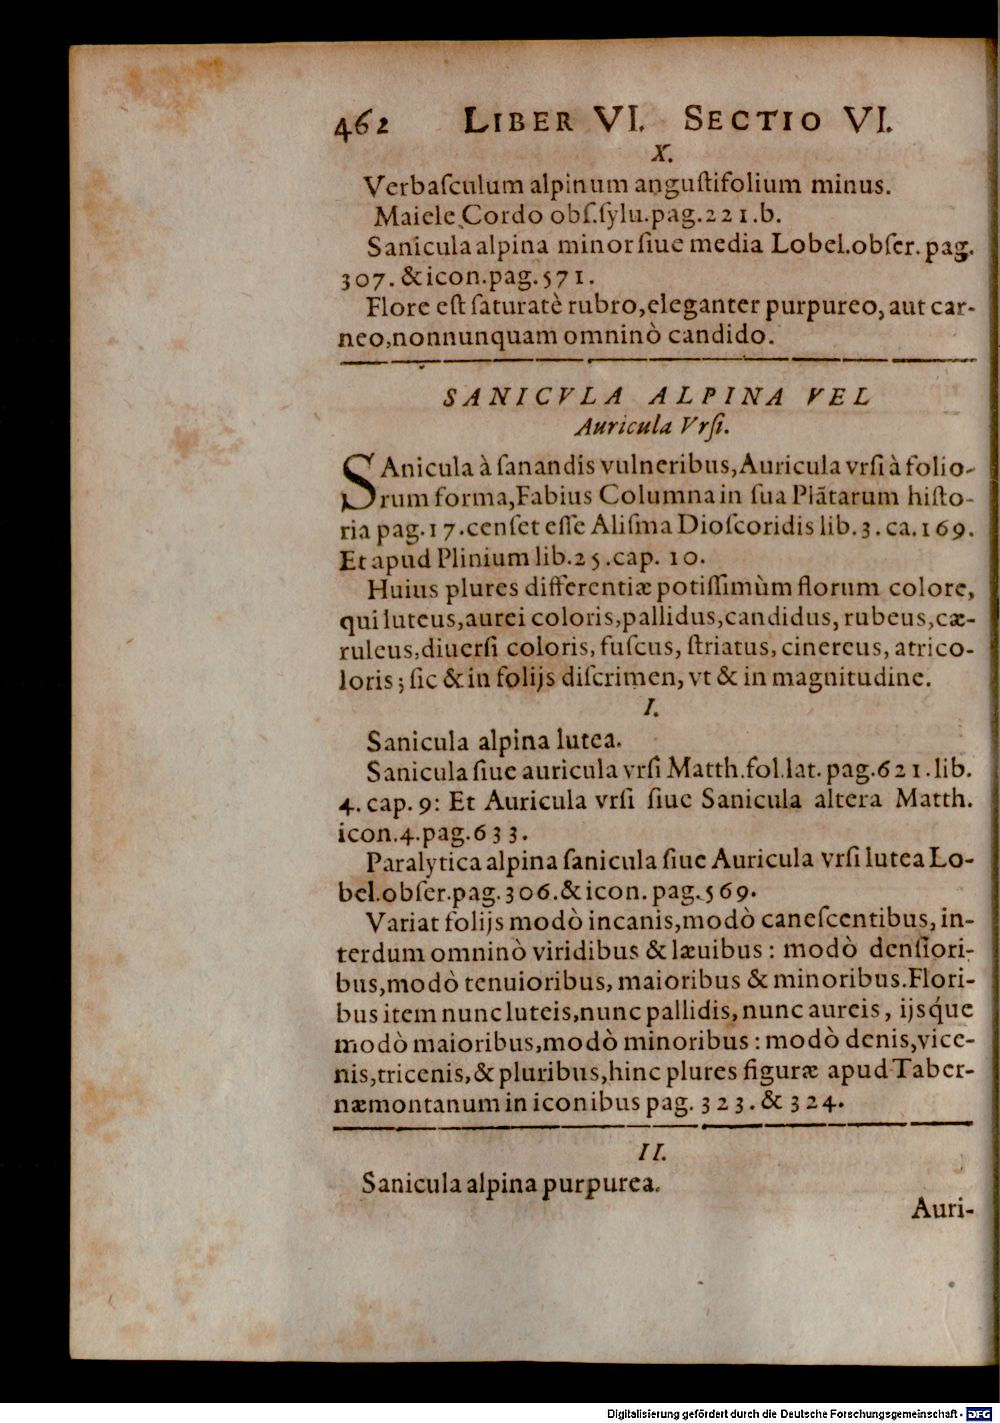 462 LIBER VI. SECTIO VI.
X.
Verbaſculum alpinum anguſtifolium minus.
Maiele Cordo obſ.ſylu.pag.221.b.
Sanicula alpina minor ſiue media Lobel.obſer. pag.
307. & icon.pag.571.
Flore eſt ſaturatè rubro,eleganter purpureo, aut car-
neo,nonnunquam omninò candido.
SANICVLA ALPINA VEL
Auricula Vrſi.
SAnicula à ſanandis vulneribus,Auricula vrſi à folio-
rum forma,Fabius Columna in ſua Plãtarum hiſto-
ria pag.17.cenſet eſſe Aliſma Dioſcoridis lib.3.ca.169.
Et apud Plinium lib.25.cap. 10.
Huius plures differentiæ potiſſimùm florum colore,
qui luteus,aurei coloris,pallidus,candidus, rubeus,cæ-
ruleus,diuerſi coloris, fuſcus, ſtriatus, cinereus, atrico-
loris; ſic & in folijs diſcrimen, vt & in magnitudine.
I.
Sanicula alpina lutea.
Sanicula ſiue auricula vrſi Matth.fol.lat. pag.621.lib.
4. cap. 9: Et Auricula vrſi ſiue Sanicula altera Matth.
icon.4.pag.633.
Paralytica alpina ſanicula ſiue Auricula vrſi lutea Lo-
bel.obſer.pag.306.& icon. pag.569.
Variat folijs modò incanis,modò caneſcentibus, in-
terdum omninò viridibus & læuibus : modò denſiori-
bus,modò tenuioribus, maioribus & minoribus.Flori-
bus item nunc luteis,nunc pallidis, nunc aureis, ijsq́ue
modò maioribus,modò minoribus : modò denis,vice-
nis,tricenis,& pluribus,hinc plures figuræ apud Taber-
næmontanum in iconibus pag. 323. & 324.
II.
Sanicula alpina purpurea.
Auri-
Digitalisierung gefördert durch die Deutsche Forschungsgemeinschaft - DFG